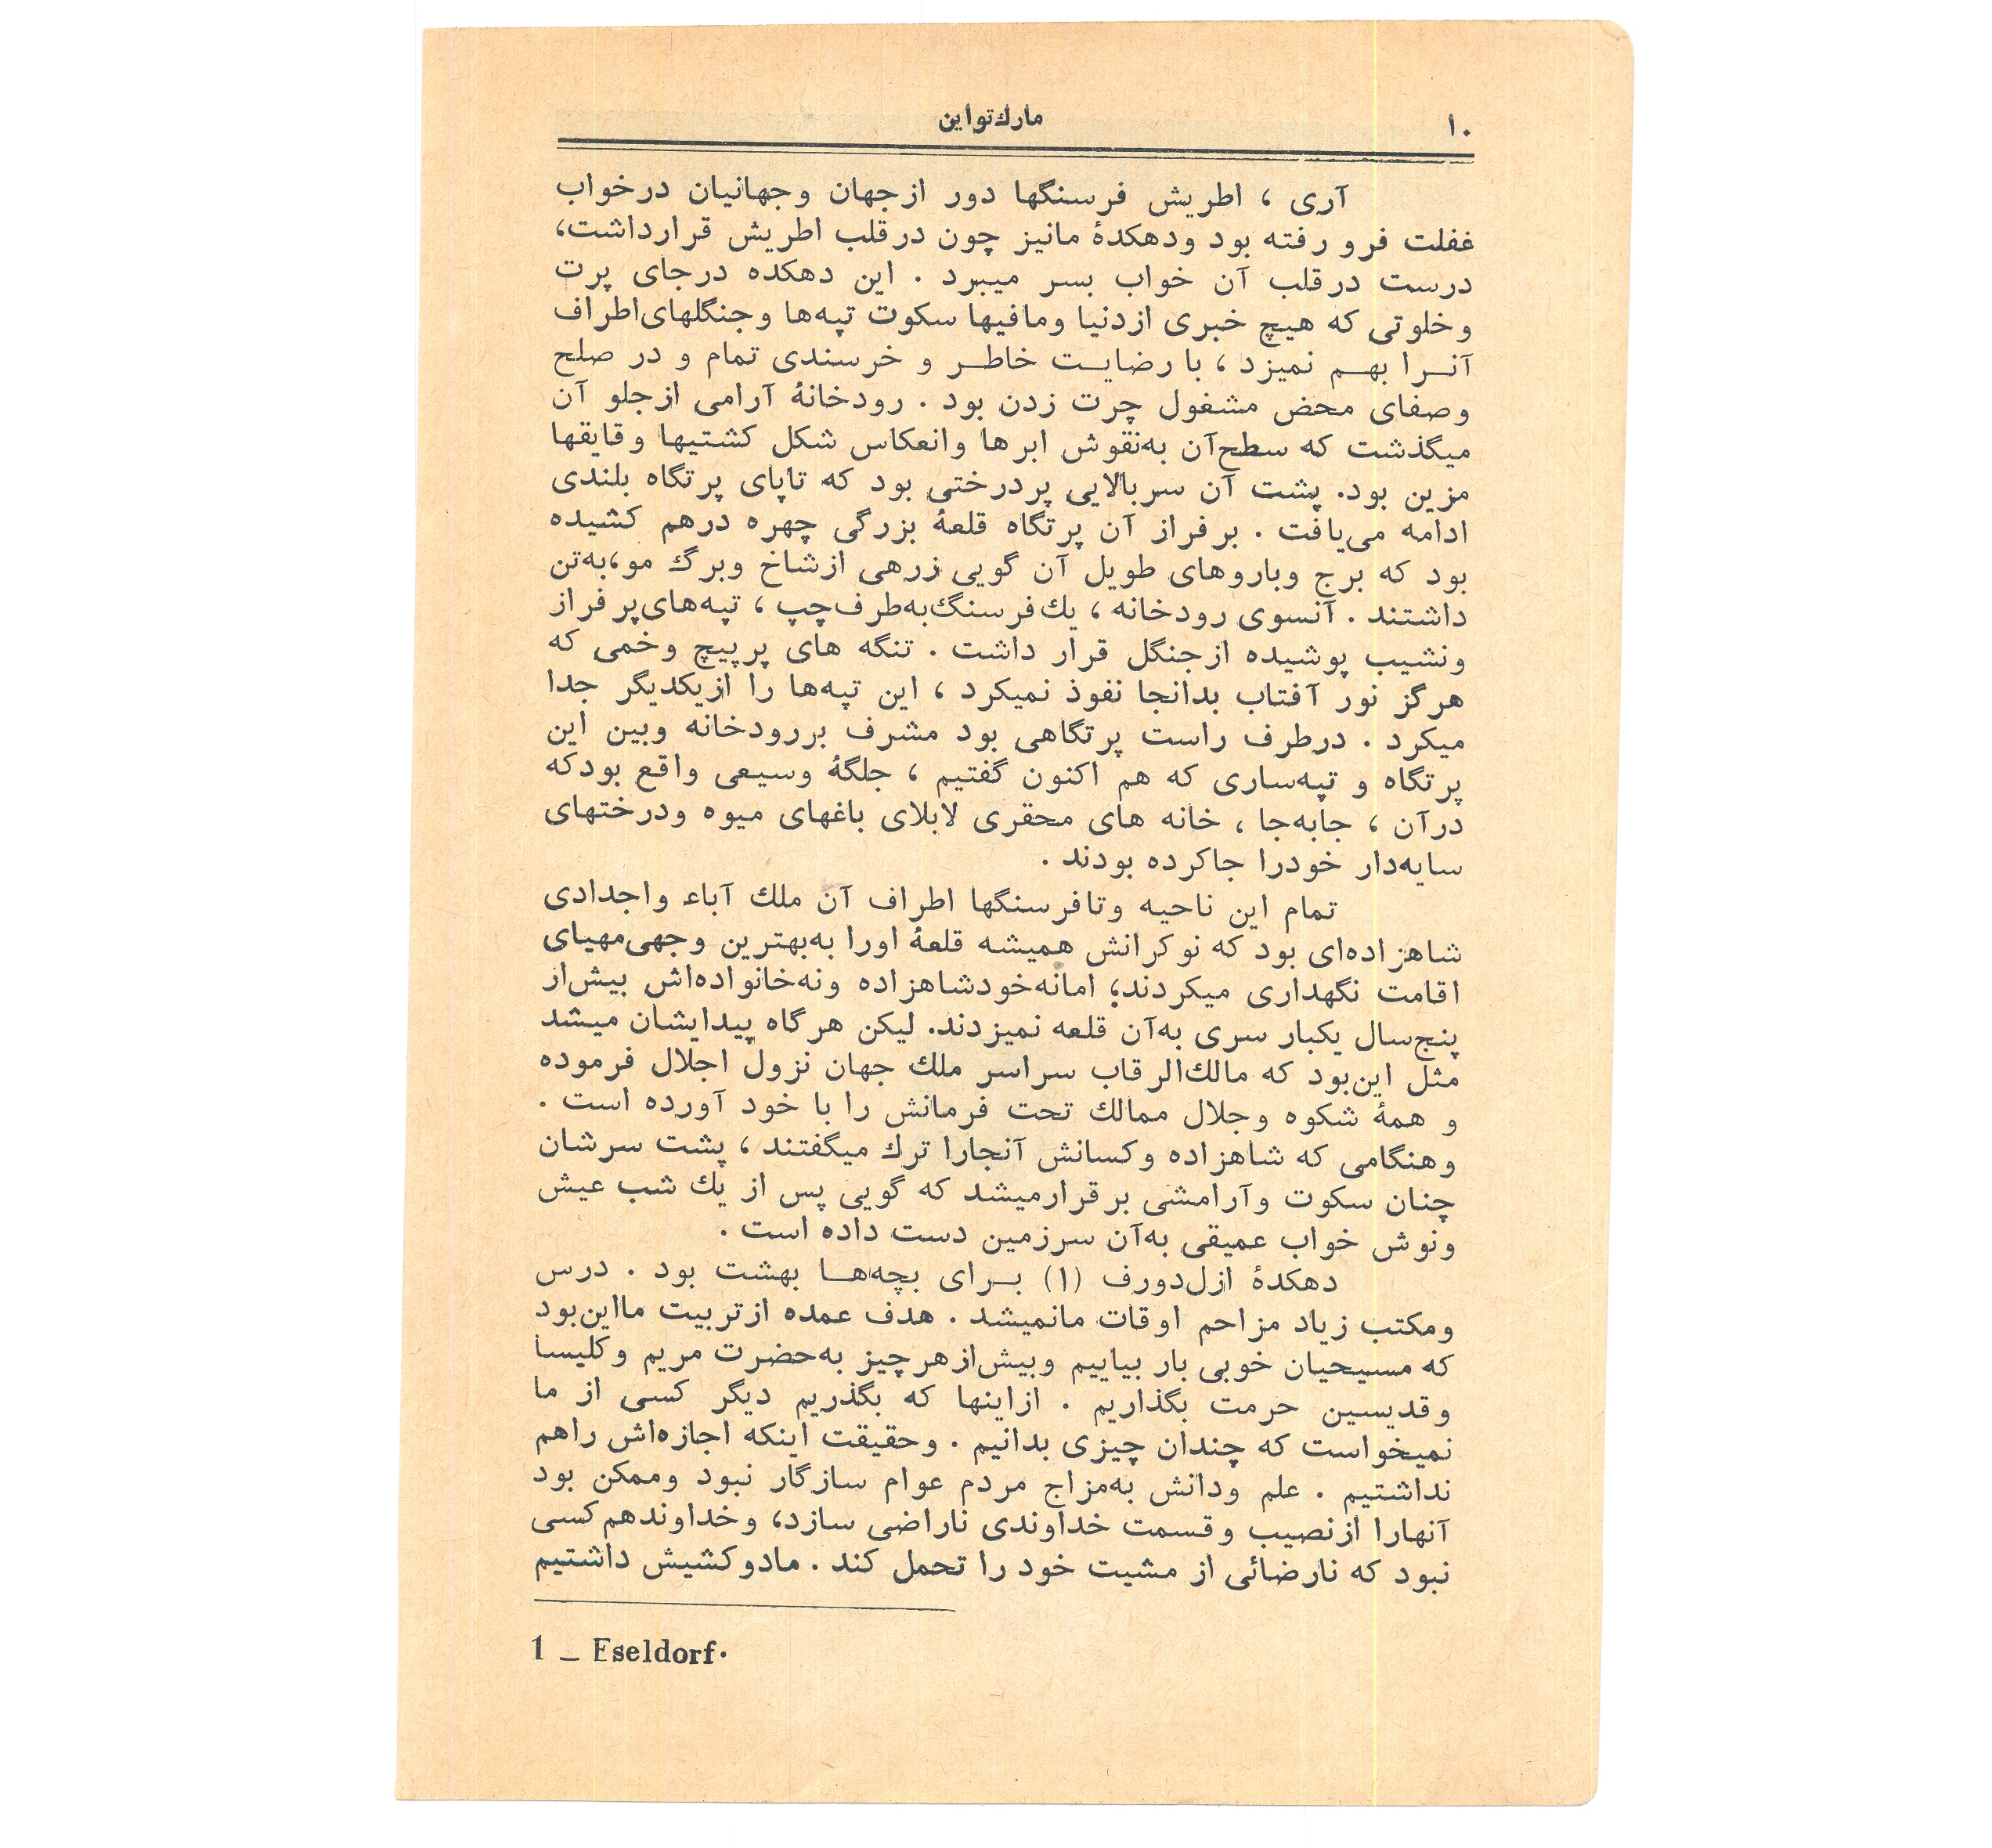 ۱۰
مارك‌تواین
آری ، اطریش فرسنگها دور ازجهان وجهانیان درخواب
غفلت فرو رفته بود ودهکدهٔ مانیز چون درقلب اطریش قرارداشت،
درست درقلب آن خواب بسر میبرد . این دهکده درجای پرت
وخلوتی که هیچ خبری ازدنیا ومافیها سکوت تپه‌ها وجنگلهای‌اطراف
آنـرا بهـم نمیزد ، با رضایـت خاطـر و خرسندی تمام و در صلح
وصفای محض مشغول چرت زدن بود . رودخانهٔ آرامی ازجلو آن
میگذشت که سطح‌آن به‌نقوش ابرها وانعکاس شکل کشتیها وقایقها
مزین بود. پشت آن سربالایی پردرختی بود که تاپای پرتگاه بلندی
ادامه می‌یافت . برفراز آن پرتگاه قلعهٔ بزرگی چهره درهم کشیده
بود که برج وباروهای طویل آن گویی زرهی ازشاخ وبرگ مو،به‌تن
داشتند . آنسوی رودخانه ، یك‌فرسنگ‌به‌طرف‌چپ ، تپه‌های‌پرفراز
ونشیب پوشیده ازجنگل قرار داشت . تنگه های پرپیچ وخمی که
هرگز نور آفتاب بدانجا نفوذ نمیکرد ، این تپه‌ها را ازیکدیگر جدا
میکرد . درطرف راست پرتگاهی بود مشرف بررودخانه وبین این
پرتگاه و تپه‌ساری که هم اکنون گفتیم ، جلگهٔ وسیعی واقع بودکه
درآن ، جابه‌جا ، خانه های محقری لابلای باغهای میوه ودرختهای
سایه‌دار خودرا جاکرده بودند .
تمام این ناحیه وتافرسنگها اطراف آن ملك آباء واجدادی
شاهزاده‌ای بود که نوکرانش همیشه قلعهٔ اورا به‌بهترین وجهی‌مهیای
اقامت نگهداری میکردند؛ امانه‌خودشاهزاده ونه‌خانواده‌اش بیش‌از
پنج‌سال یکبار سری به‌آن قلعه نمیزدند. لیکن هرگاه پیدایشان میشد
مثل این‌بود که مالك‌الرقاب سراسر ملك جهان نزول اجلال فرموده
و همهٔ شکوه وجلال ممالك تحت فرمانش را با خود آورده است .
وهنگامی که شاهزاده وکسانش آنجارا ترك میگفتند ، پشت سرشان
چنان سکوت وآرامشی برقرارمیشد که گویی پس از یك شب عیش
ونوش خواب عمیقی به‌آن سرزمین دست داده است .
دهکدهٔ ازل‌دورف (۱) بـرای بچه‌هـا بهشت بود . درس
ومکتب زیاد مزاحم اوقات مانمیشد . هدف عمده ازتربیت مااین‌بود
که مسیحیان خوبی بار بیاییم وبیش‌ازهرچیز به‌حضرت مریم وکلیسا
وقدیسین حرمت بگذاریم . ازاینها که بگذریم دیگر کسی از ما
نمیخواست که چندان چیزی بدانیم . وحقیقت اینکه اجازه‌اش راهم
نداشتیم . علم ودانش به‌مزاج مردم عوام سازگار نبود وممکن بود
آنهارا ازنصیب وقسمت خداوندی ناراضی سازد، وخداوندهم‌کسی
نبود که نارضائی از مشیت خود را تحمل کند . مادوکشیش داشتیم
1 _ Eseldorf.